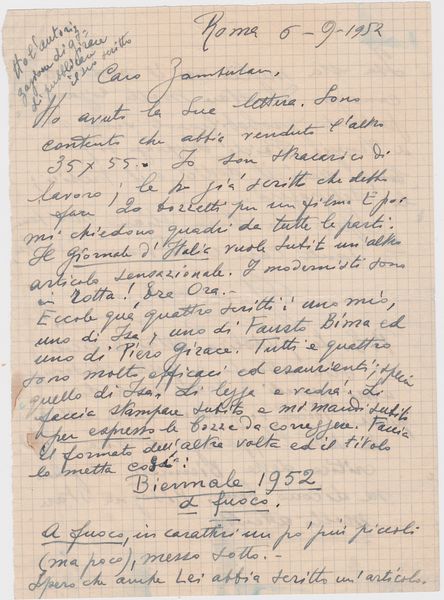 Roma 6-9-1952
Ho l'autori-
zazione di
di pubblicare
il suo scritto
Caro Zambutan,
Ho avuto la Sue lettera. Sono
contento che abbia venduto l'altro
35 x 55.- Io son stracarico di
lavoro; le ho già scritto che debbo
fare 20 bozzetti per un films E poi
mi chiedono quadri da tutte le parti.
Il Giornale d'Italia vuole subito un'altro
articolo sensazionale. I modernisti sono
in rotta! Era Ora.-
Eccole quà quattro scritti: uno mio,
uno di Isa, uno di Fausto Bima ed
uno di Piero Girace. Tutti e quattro
sono molto efficaci ed esaurienti, specie
quello di Isa. Li legga e vedrà. Li
faccia stampare subito e mi mandi subito
per espresso le bozze da correggere. Faccia
il formato dell'altra volta ed il titolo
lo metta così:
Biennale 1952
a fuoco.
A fuoco, in caratteri un pò più piccoli
(ma poco), messo sotto.-
Spero che anche Lei abbia scritto un'articolo.